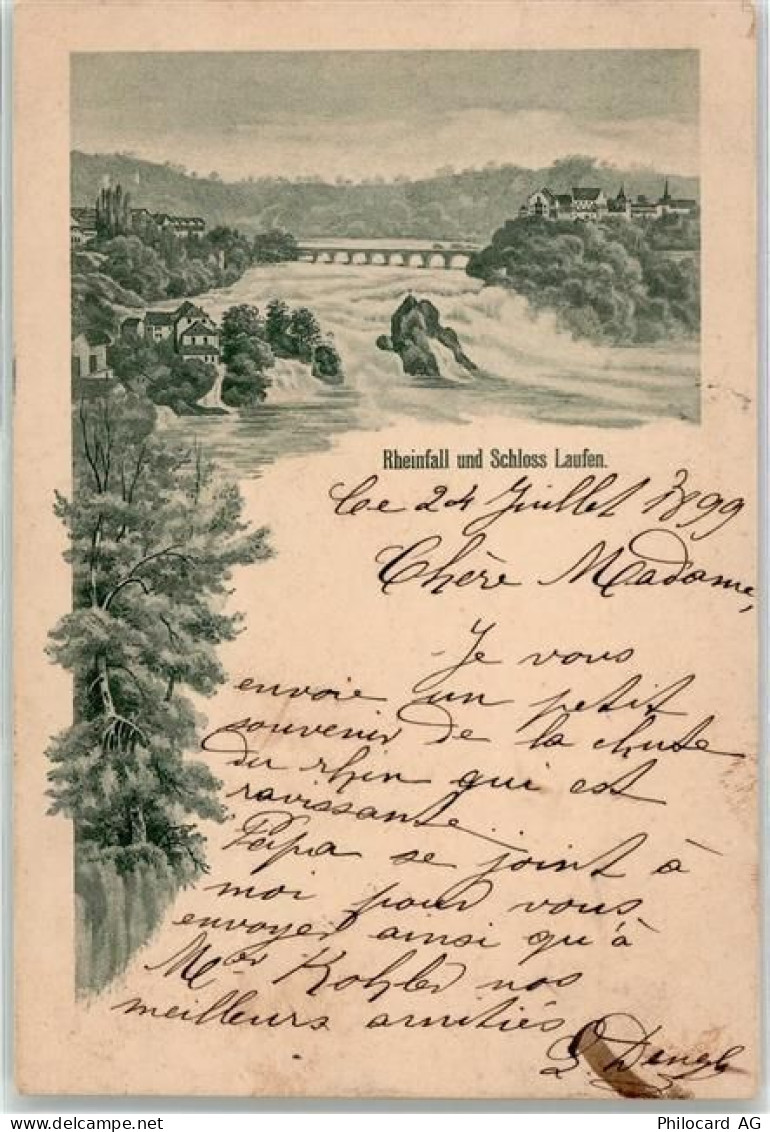 Rheinfall und Schloss Laufen.
Le 24 Juillet 1899
Chère Madame,
Je vous
envoie un petit
souvenir de la chute
du rhin qui est
ravissante.
Papa se joint à
moi pour vous
envoyer ainsi qu'à
Mr Kohler nos
meilleurs amitiés
Philocard AG